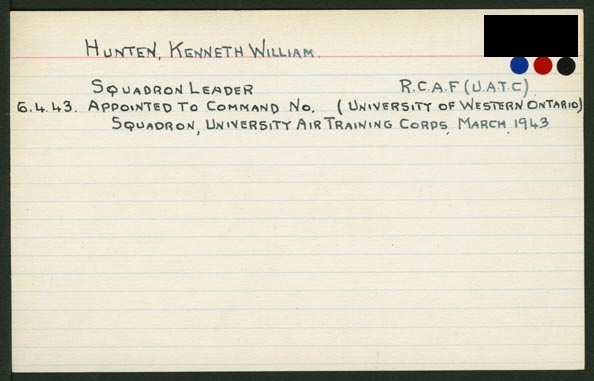 HUNTEN, KENNETH WILLIAM.
SQUADRON LEADER R.C.A.F (U.A.T.C)
6.4.43. APPOINTED TO COMMAND NO. (UNIVERSITY OF WESTERN ONTARIO)
SQUADRON, UNIVERSITY AIR TRAINING CORPS, MARCH, 1943